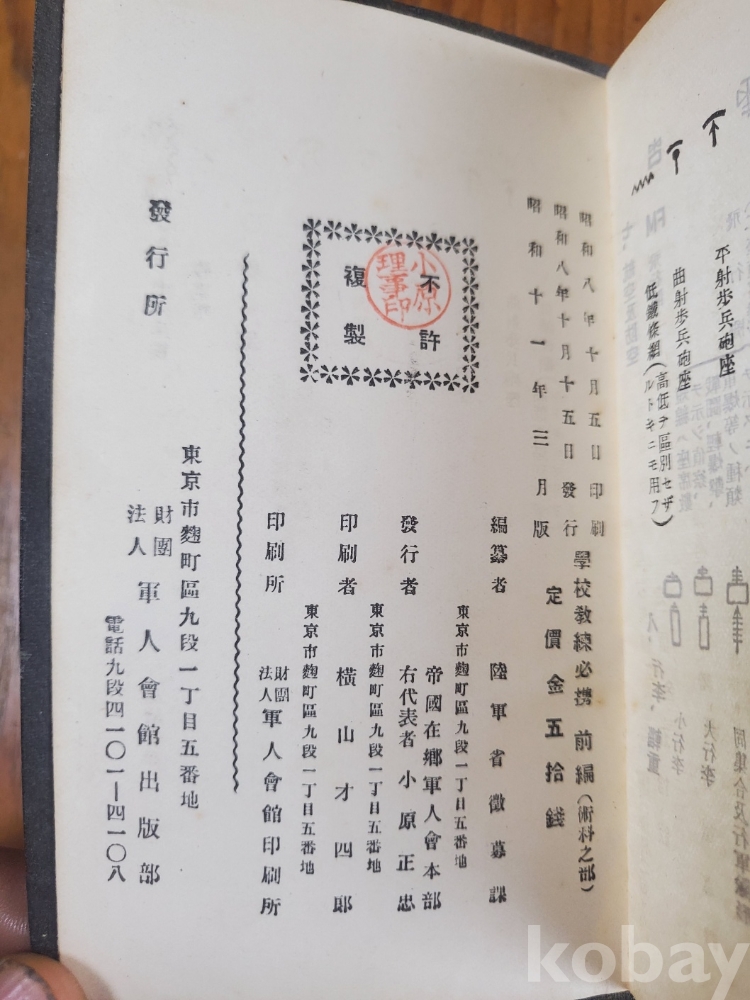 平射歩兵砲座
曲射歩兵砲座
低鐵條網(高低ヲ區別セザルトキニモ用フ)
大行李
小行李
昭和八年十月五日印刷
昭和八年十月十五日發行
昭和十一年三月版
學校教練必携 前編(術科之部)
定價金五拾錢
不許
複製
小原
理事印
編纂者 陸軍省徴募課
東京市麴町區九段一丁目五番地
發行者 帝國在鄕軍人會本部
右代表者 小原正忠
東京市麴町區九段一丁目五番地
印刷者 橫山才四郎
東京市麴町區九段一丁目五番地
印刷所 財團法人 軍人會館印刷所
發行所
東京市麴町區九段一丁目五番地
財團法人 軍人會館出版部
電話九段四一〇一—四一〇八
kobay